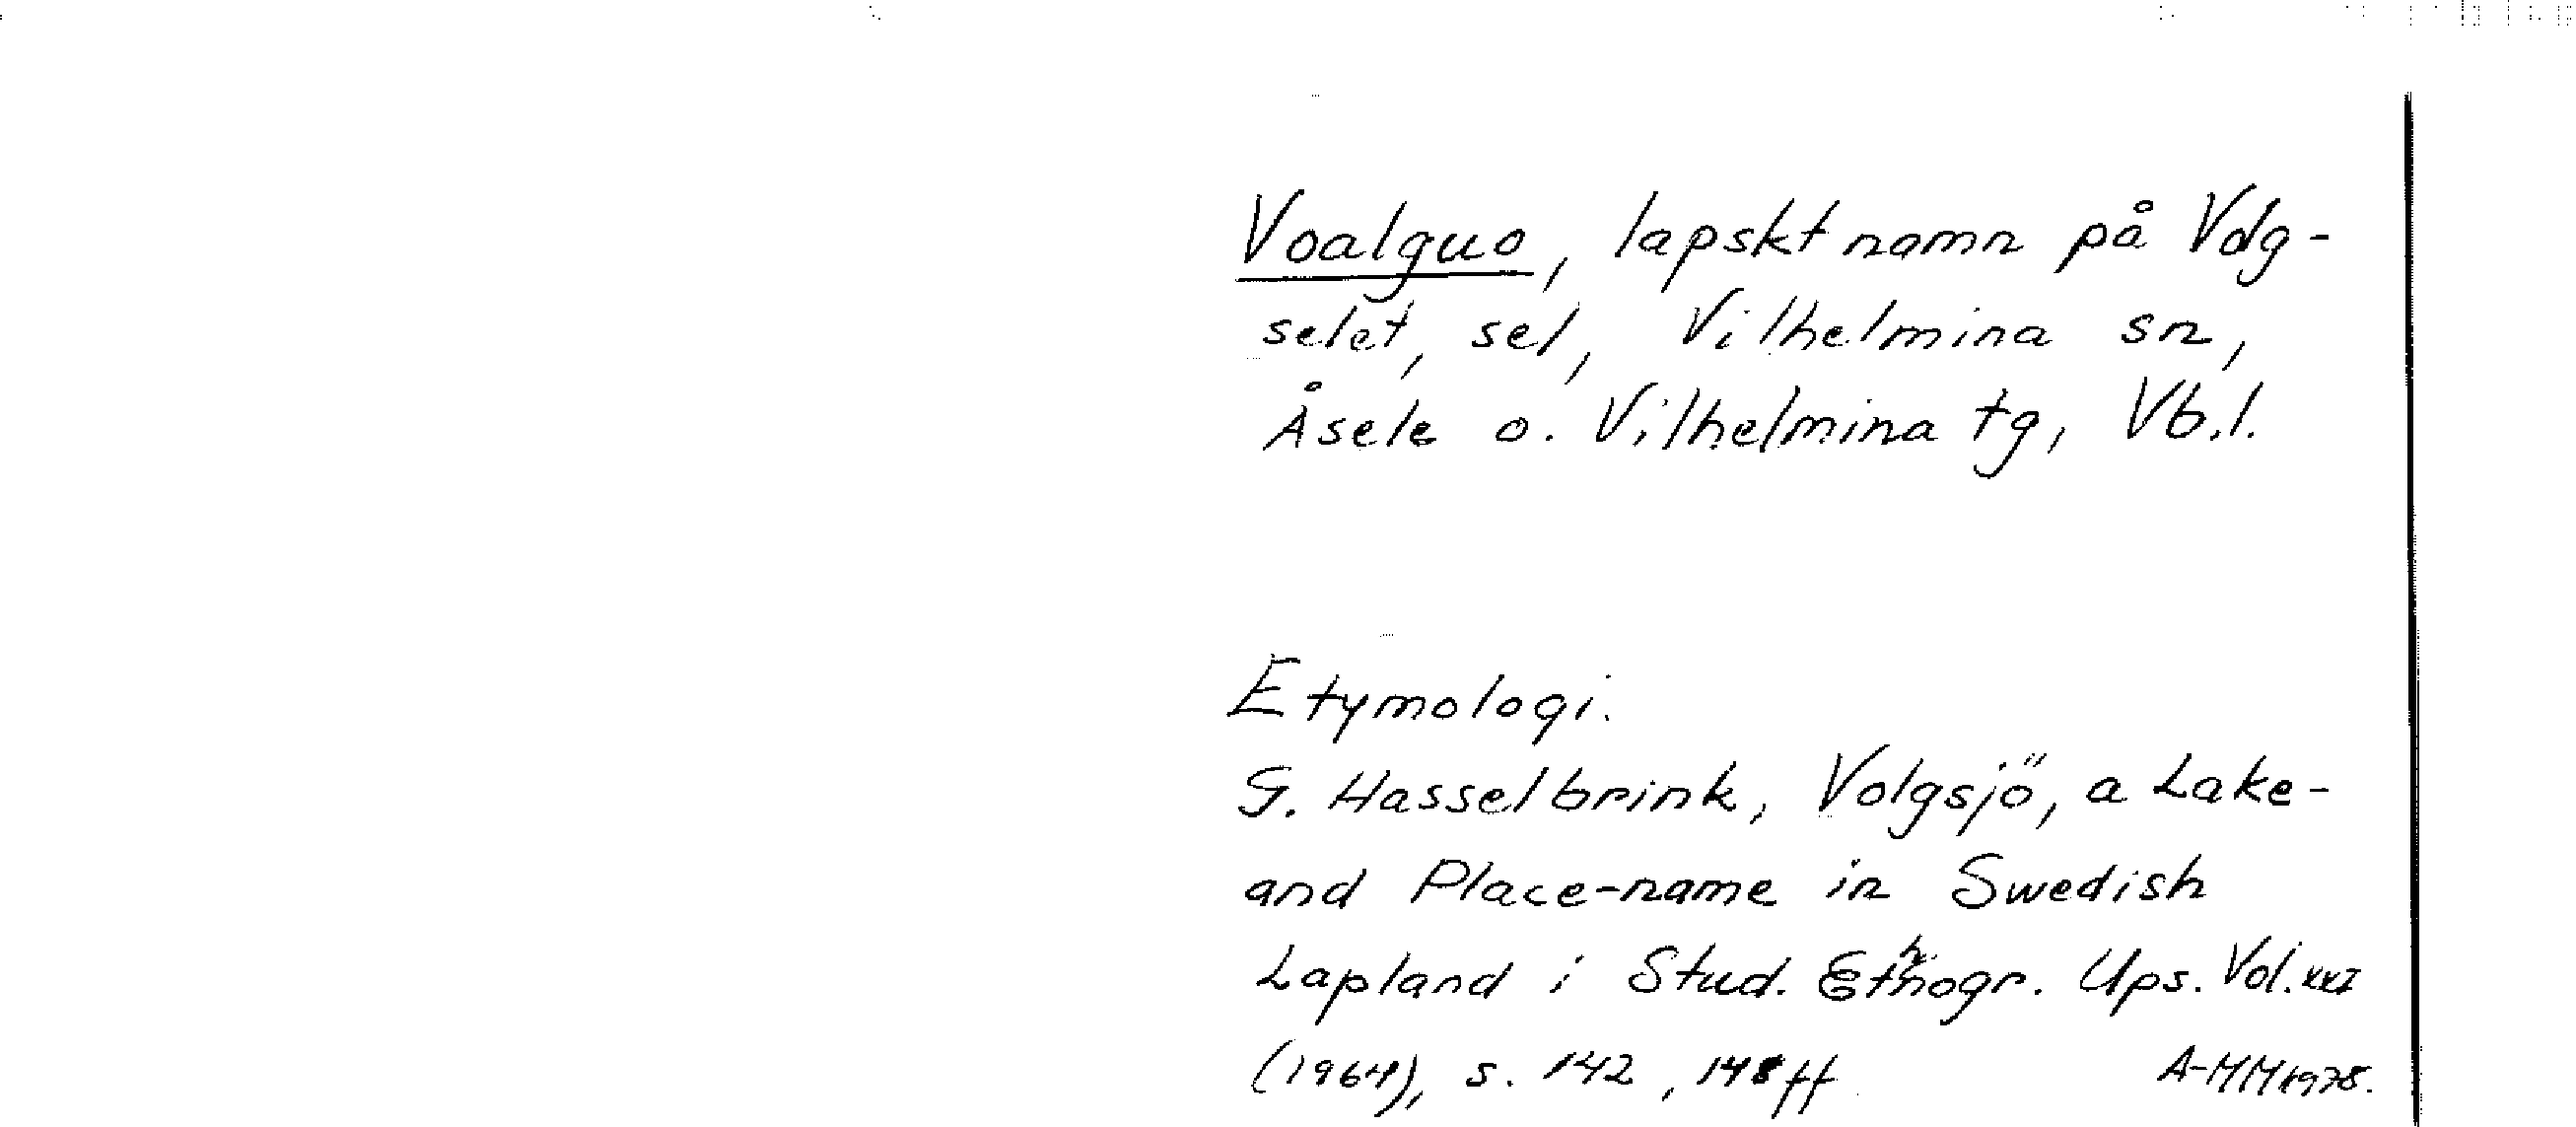 Voalguo, lapskt namn på Volg-
selet, sel, Vilhelmina sn,
Åsele o. Vilhelmina tg, Vb.l.
Etymologi.
G. Hasselbrink, Volgsjö, a Lake-
and Place-name in Swedish
Lapland i Stud. Ethnogr. Ups. Vol. XXI
(1964), s. 142, 148 ff
A-MM 1978.